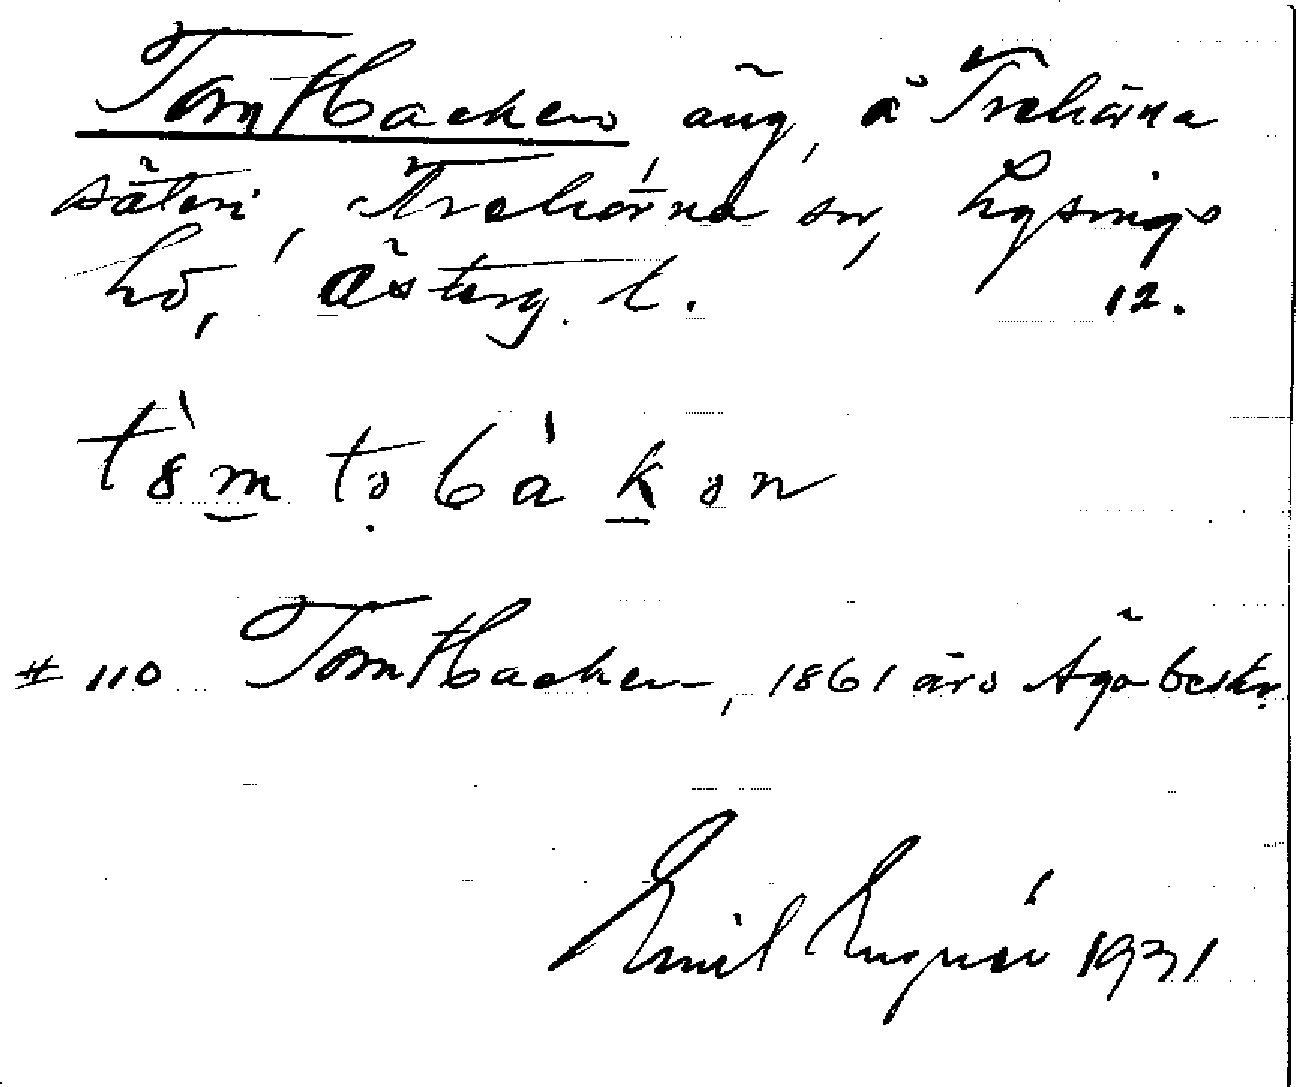 Tomtbacken, äng, å Trehörna
säteri, Trehörna sn, Lysings
hd, Österg. l. 12.
tòmtəbàkən
# 110 Tomtbacken, 1861 års Ägobeskr.
Emil Engnér 1931